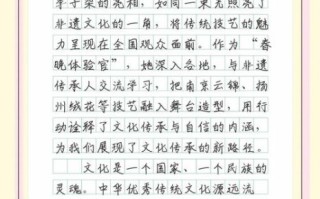 李子柒的亮相，如同一束光照亮了
非遗文化的一角，将传统技艺的魅
力呈现在全国观众面前。作为“春
晚体验官”，她深入各地，与非遗
传承人交流学习，把南京云锦、扬
州绒花等技艺融入舞台造型，用行
动诠释了文化传承与自信的内涵，
为我们展现了文化传承的新路径。
文化是一个国家、一个民族的
灵魂。中华优秀传统文化源远流